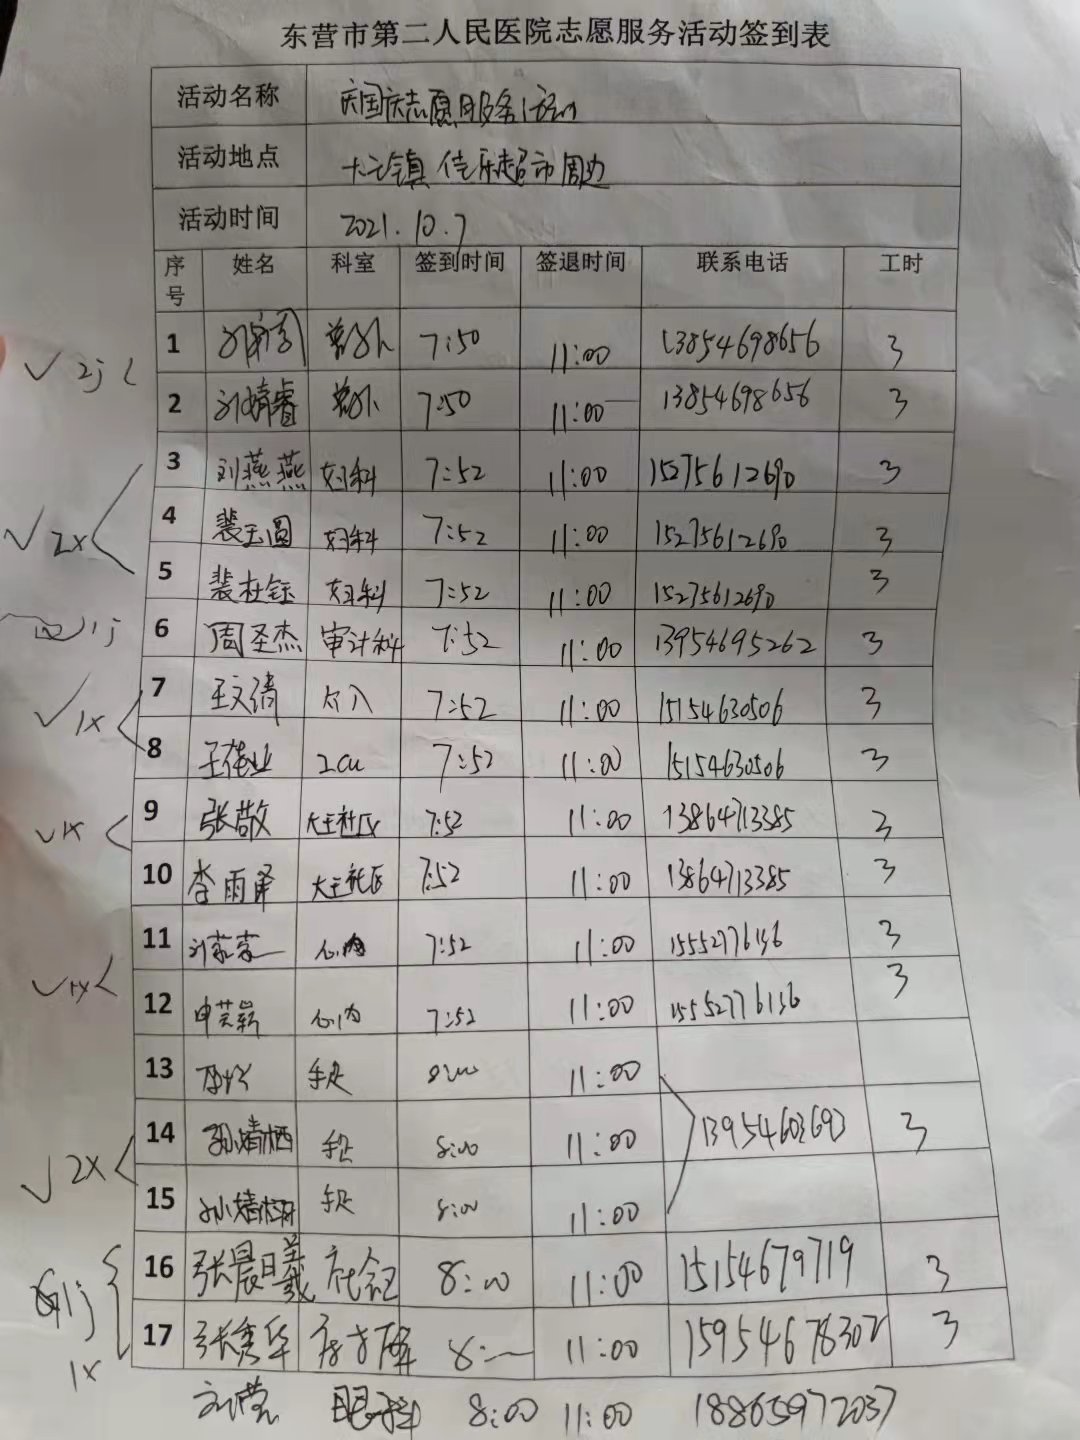 东营市第二人民医院志愿服务活动签到表
活动名称 庆国庆志愿服务活动
活动地点 大王镇 佳乐超市周边
活动时间 2021.10.7
序号 姓名 科室 签到时间 签退时间 联系电话 工时
1 普外 7:50 11:00 13854698656 3
√ 2j
2 刘婧睿 普外 7:50 11:00 13854698656 3
3 刘燕燕 妇科 7:52 11:00 15275612690 3
4 裴玉圆 妇科 7:52 11:00 15275612690 3
√ 2x
5 裴在钰 妇科 7:52 11:00 15275612690 3
1j 6 周圣杰 审计科 7:52 11:00 13954695262 3
7 王文清 介入 7:52 11:00 15154630506 3
√ 1x
8 王伟业 ICU 7:52 11:00 15154630506 3
9 张敬 大王社区 7:52 11:00 13864713385 3
√ 1x
10 李雨泽 大王社区 7:52 11:00 13864713385 3
11 心内 7:52 11:00 15552776136 3
√ 1x
12 心内 7:52 11:00 15552776136 3
13 8:00 11:00
14 孙婧栖 8:00 11:00 13954603693 3
√ 2x
15 8:00 11:00
16 张晨曦 8:00 11:00 15154679719 3
1j
17 张秀华 8:— 11:00 15954678302 3
1x
眼科 8:00 11:00 18865972037